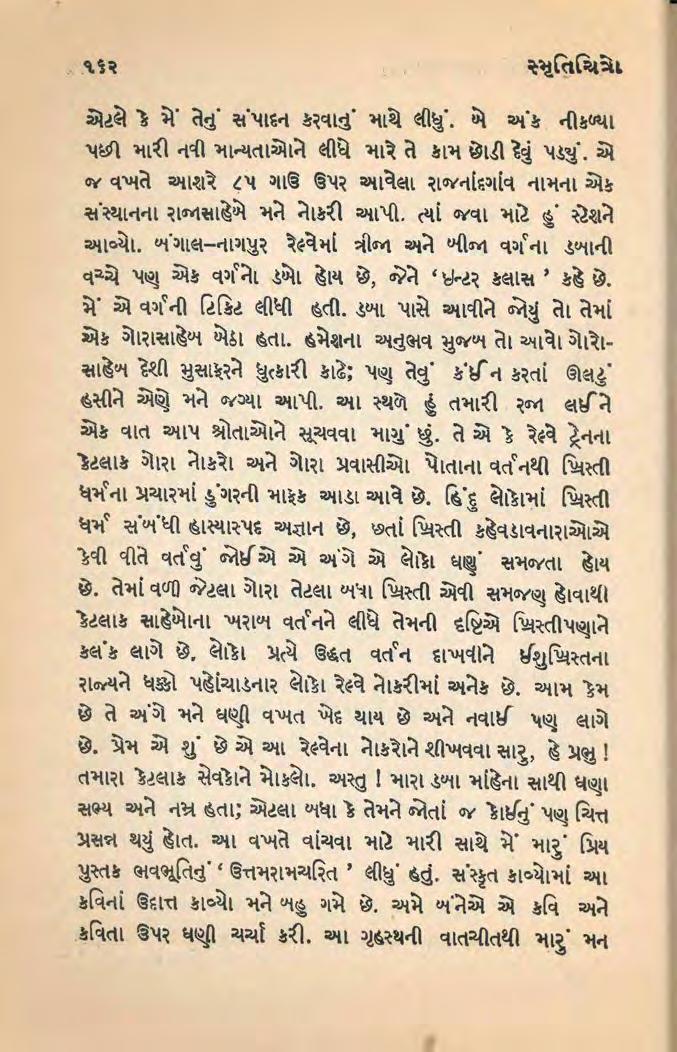 ૧૬૨ સ્મૃતિચિત્રો
એટલે કે મેં તેનું સંપાદન કરવાનું માથે લીધું. બે અંક નીકળ્યા
પછી મારી નવી માન્યતાઓને લીધે મારે તે કામ છોડી દેવું પડયું. એ
જ વખતે આશરે ૮૫ ગાઉ ઉપર આવેલા રાજનાંદગાંવ નામના એક
સંસ્થાનના રાજાસાહેબે મને નોકરી આપી. ત્યાં જવા માટે હું સ્ટેશને
આવ્યો. બંગાલ–નાગપુર રેલ્વેમાં ત્રીજા અને બીજા વર્ગના ડબાની
વચ્ચે પણ એક વર્ગનો ડબો હોય છે, જેને ‘ ઇન્ટર કલાસ ’ કહે છે.
મેં એ વર્ગની ટિકિટ લીધી હતી. ડબા પાસે આવીને જોયું તો તેમાં
એક ગોરાસાહેબ બેઠા હતા. હમેશના અનુભવ મુજબ તો આવો ગોરો-
સાહેબ દેશી મુસાફરને ધુત્કારી કાઢે; પણ તેવું કંઈ ન કરતાં ઊલટું
હસીને એણે મને જગ્યા આપી. આ સ્થળે હું તમારી રજા લઈને
એક વાત આપ શ્રોતાઓને સૂચવવા માગું છું. તે એ કે રેલ્વે ટ્રેનના
કેટલાક ગોરા નોકરો અને ગોરા પ્રવાસીઓ પોતાના વર્તનથી ખ્રિસ્તી
ધર્મના પ્રચારમાં ડુંગરની માફક આડા આવે છે. હિંદુ લોકોમાં ખ્રિસ્તી
ધર્મ સંબંધી હાસ્યાસ્પદ અજ્ઞાન છે, છતાં ખ્રિસ્તી કહેવડાવનારાઓએ
કેવી વીતે વર્તવું જોઈએ એ અંગે એ લોકો ઘણું સમજતા હોય
છે. તેમાં વળી જેટલા ગોરા તેટલા બધા ખ્રિસ્તી એવી સમજણ હોવાથી
કેટલાક સાહેબોના ખરાબ વર્તનને લીધે તેમની દૃષ્ટિએ ખ્રિસ્તીપણાને
કલંક લાગે છે. લોકો પ્રત્યે ઉદ્ધત વર્તન દાખવીને ઈશુખ્રિસ્તના
રાજ્યને ધક્કો પહોંચાડનાર લોકો રેલ્વે નોકરીમાં અનેક છે. આમ કેમ
છે તે અંગે મને ઘણી વખત ખેદ થાય છે અને નવાઈ પણ લાગે
છે. પ્રેમ એ શું છે એ આ રેલ્વેના નોકરોને શીખવવા સારુ, હે પ્રભુ !
તમારા કેટલાક સેવકોને મોકલો. અસ્તુ ! મારા ડબા માંહેના સાથી ઘણા
સભ્ય અને નમ્ર હતા; એટલા બધા કે તેમને જોતાં જ કોઈનું પણ ચિત્ત
પ્રસન્ન થયું હોત. આ વખતે વાંચવા માટે મારી સાથે મેં મારું પ્રિય
પુસ્તક ભવભૂતિનું ‘ ઉત્તમરામચરિત ’ લીધું હતું. સંસ્કૃત કાવ્યોમાં આ
કવિનાં ઉદાત્ત કાવ્યો મને બહુ ગમે છે. અમે બંનેએ એ કવિ અને
કવિતા ઉપર ઘણી ચર્ચા કરી. આ ગૃહસ્થની વાતચીતથી મારું મન